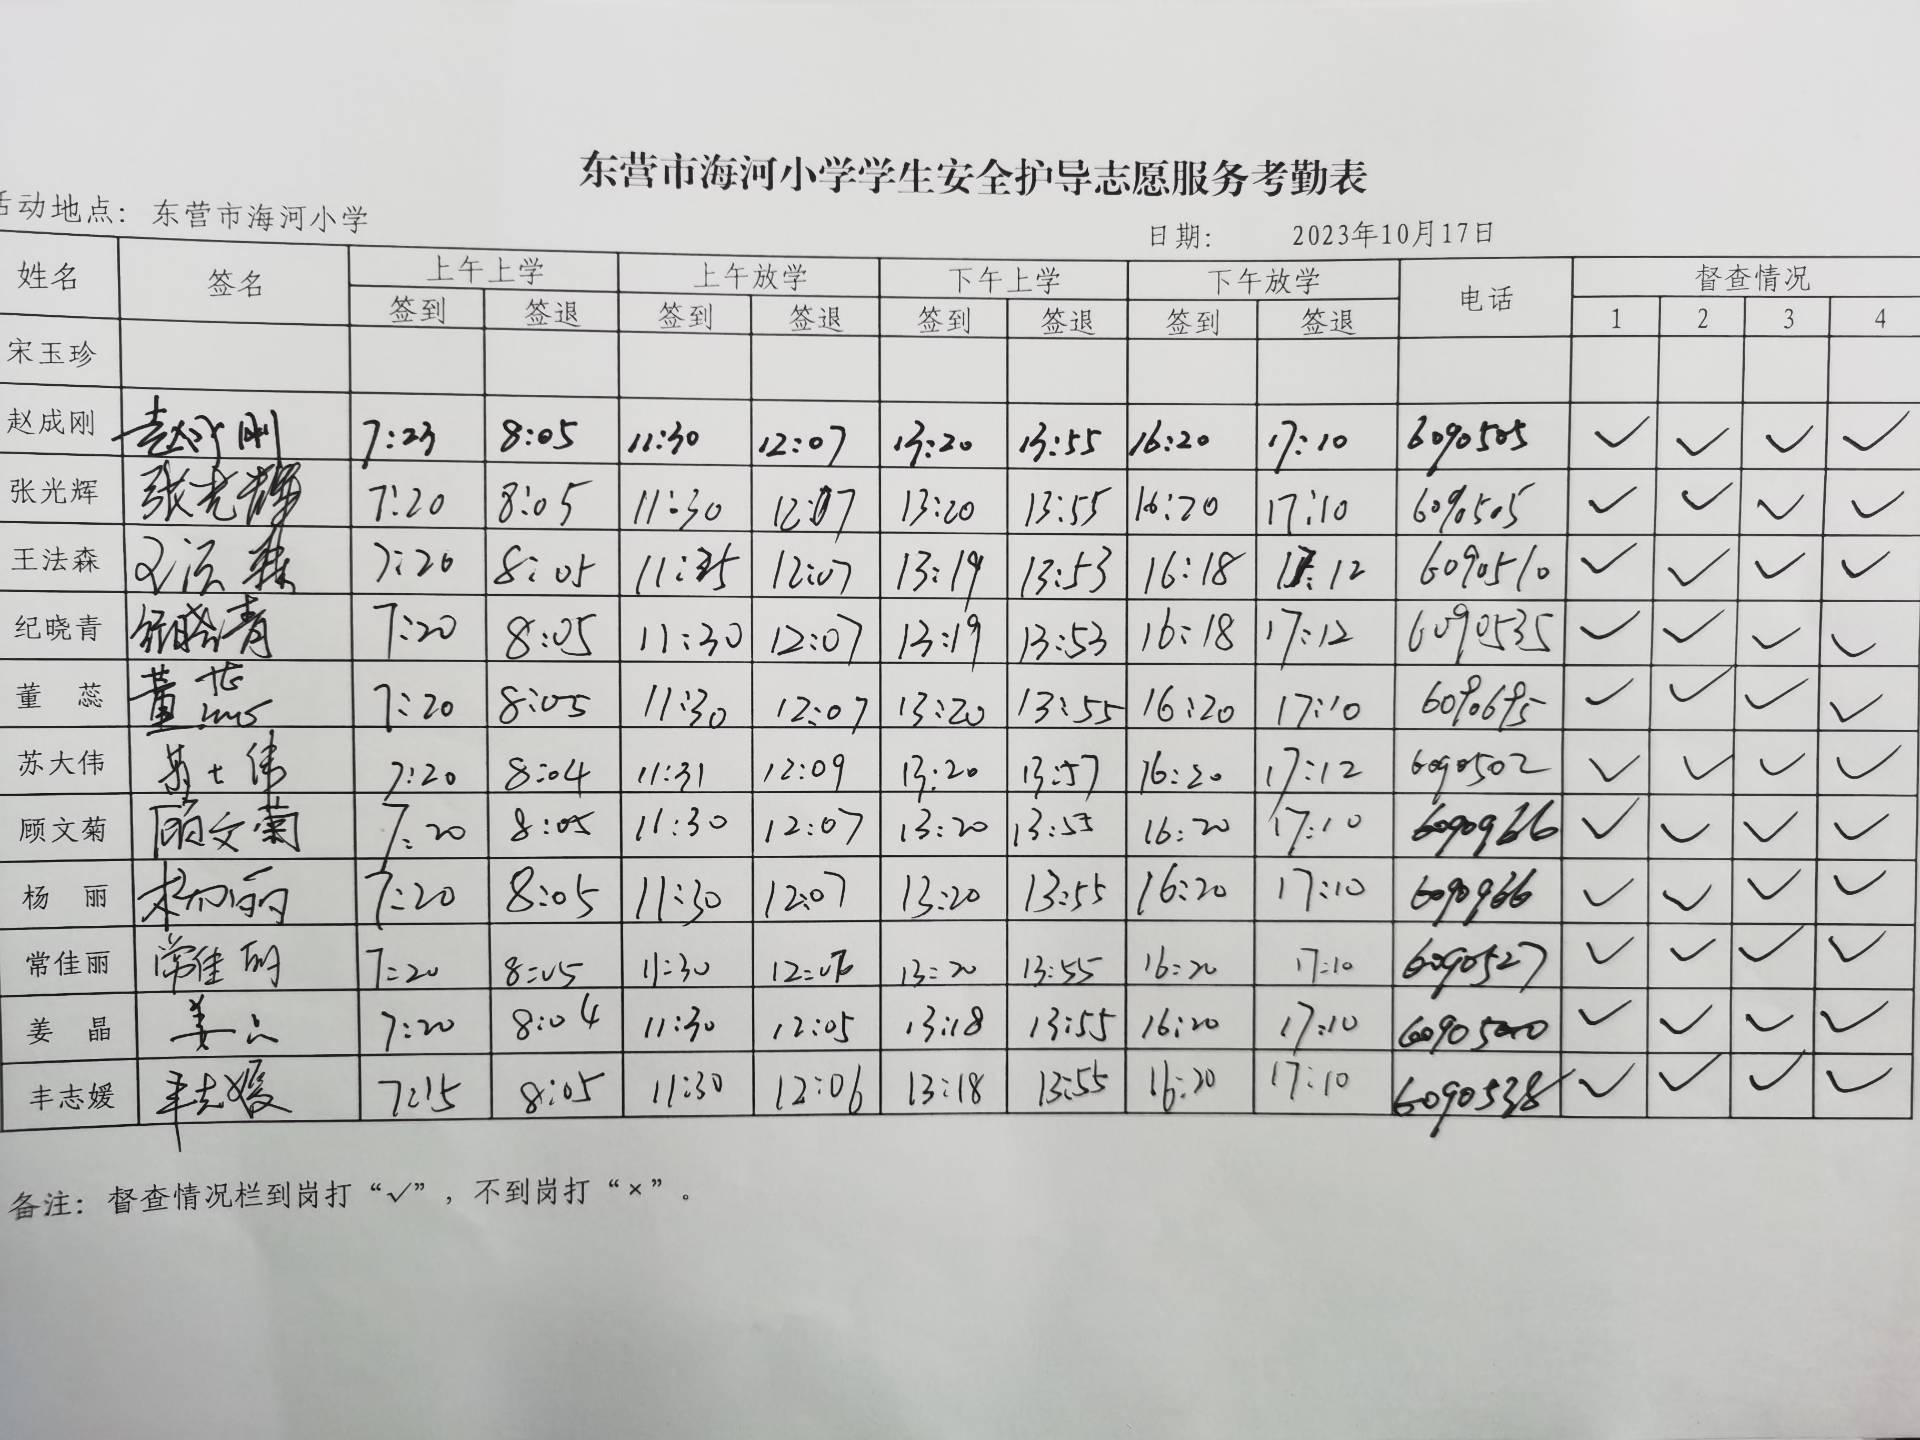 东营市海河小学学生安全护导志愿服务考勤表
活动地点: 东营市海河小学 日期: 2023年10月17日
姓名 签名 上午上学 上午放学 下午上学 下午放学 电话 督查情况
签到 签退 签到 签退 签到 签退 签到 签退 1 2 3 4
宋玉珍
赵成刚 赵成刚 7:23 8:05 11:30 12:07 13:20 13:55 16:20 17:10 6090505 ✓ ✓ ✓ ✓
张光辉 张光辉 7:20 8:05 11:30 12:07 13:20 13:55 16:20 17:10 6090505 ✓ ✓ ✓ ✓
王法森 王法森 7:20 8:05 12:07 13:19 13:53 16:18 17:12 6090510 ✓ ✓ ✓ ✓
纪晓青 纪晓青 7:20 8:05 11:30 12:07 13:19 13:53 16:18 17:12 6090535 ✓ ✓ ✓ ✓
董 蕊 董蕊 7:20 8:05 11:30 12:07 13:20 13:55 16:20 17:10 6090695 ✓ ✓ ✓ ✓
苏大伟 苏大伟 7:20 8:04 11:31 12:09 13:20 13:57 16:20 17:12 6090502 ✓ ✓ ✓ ✓
顾文菊 顾文菊 7:20 8:05 11:30 12:07 13:20 13:55 16:20 17:10 6090966 ✓ ✓ ✓ ✓
杨 丽 杨丽 7:20 8:05 11:30 12:07 13:20 13:55 16:20 17:10 6090966 ✓ ✓ ✓ ✓
常佳丽 常佳丽 7:20 8:05 11:30 13:20 13:55 16:20 17:10 6090527 ✓ ✓ ✓ ✓
姜 晶 姜晶 7:20 8:04 11:30 12:05 13:18 13:55 16:20 17:10 ✓ ✓ ✓ ✓
丰志媛 丰志媛 7:15 8:05 11:30 12:06 13:18 13:55 16:20 17:10 6090538 ✓ ✓ ✓ ✓
备注: 督查情况栏到岗打“✓”, 不到岗打“×”。